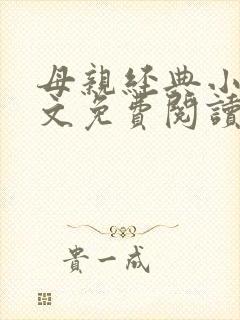 母親經典小
文免費閱讀
貴一成